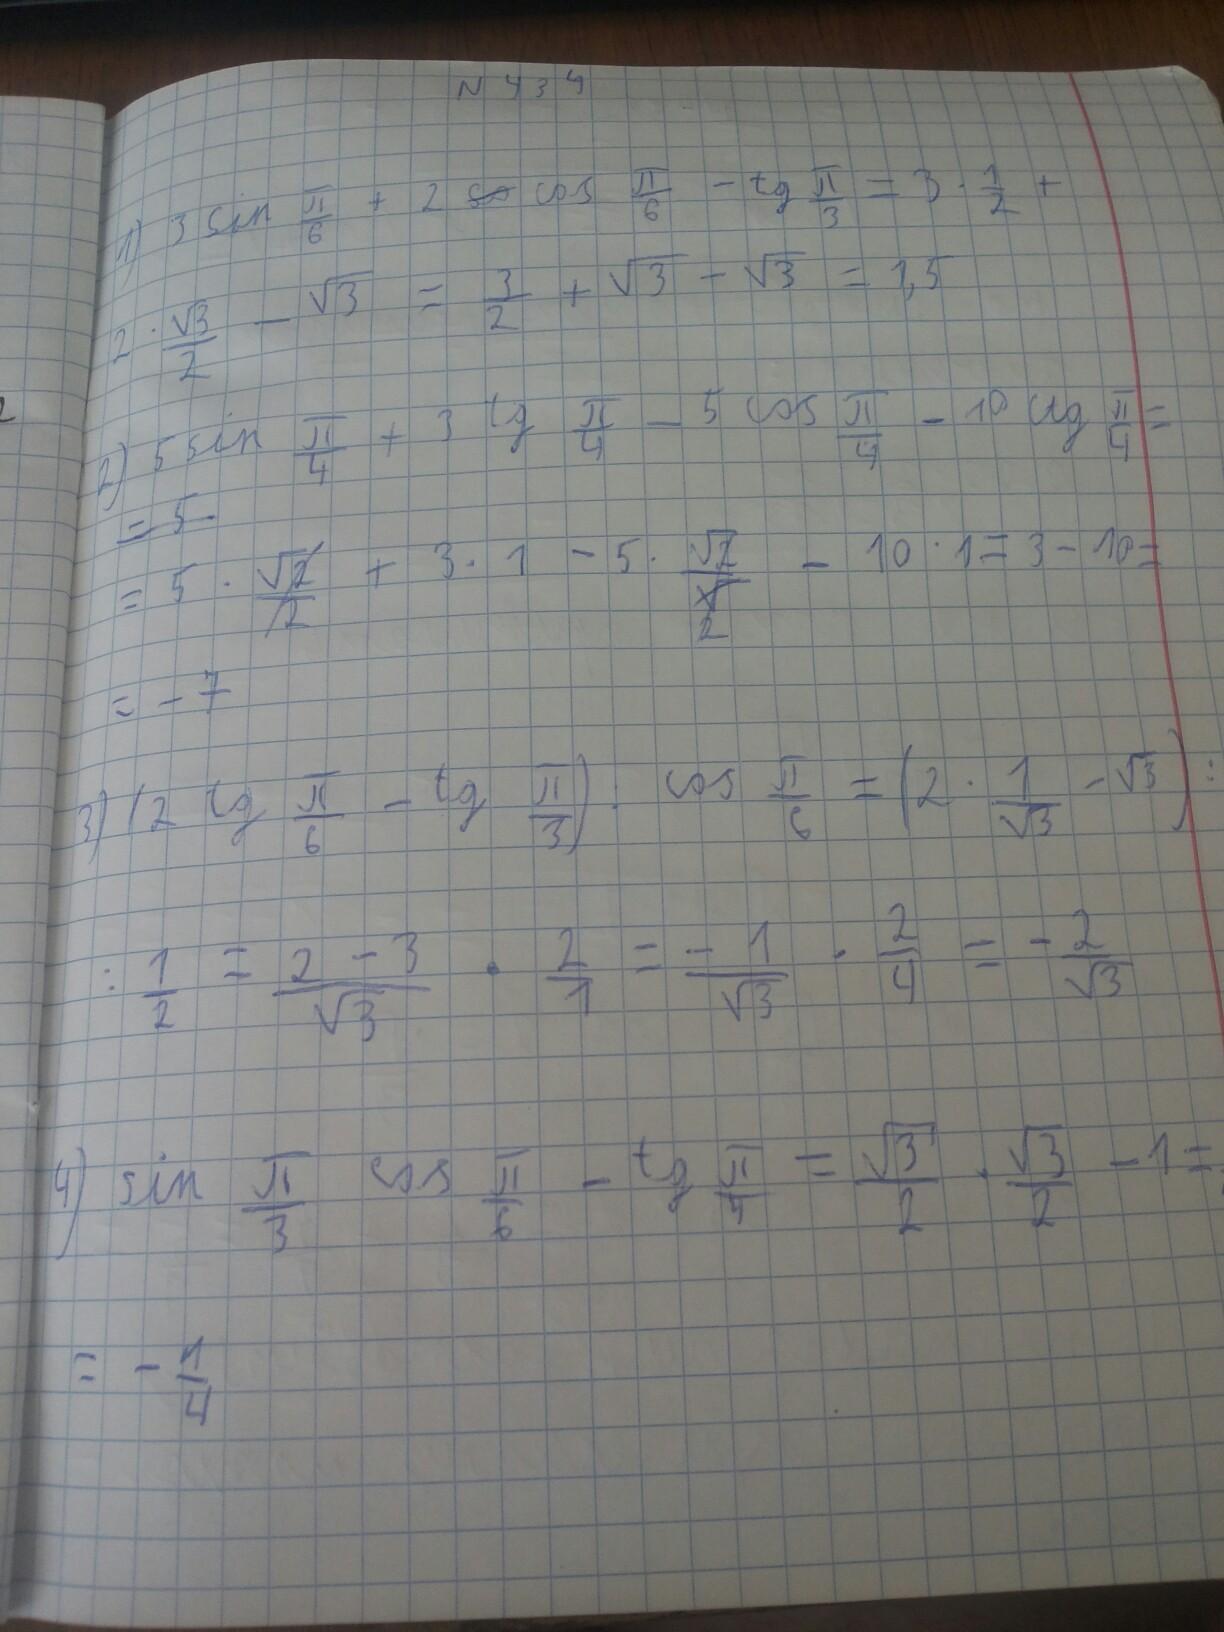 N 434
1) 3 sin π/6 + 2 cos π/6 - tg π/3 = 3 · 1/2 +
2 · √3/2 - √3 = 3/2 + √3 - √3 = 1,5
2) 5 sin π/4 + 3 tg π/4 - 5 cos π/4 - 10 ctg π/4 =
= 5
= 5 · √2/2 + 3 · 1 - 5 · √2/2 - 10 · 1 = 3 - 10 =
= - 7
3) (2 tg π/6 - tg π/3) : cos π/6 = (2 · 1/√3 - √3) :
: 1/2 = (2 - 3)/√3 · 2/1 = - 1/√3 · 2/4 = - 2/√3
4) sin π/3 cos π/6 - tg π/4 = √3/2 · √3/2 - 1 =
= - 1/4
2